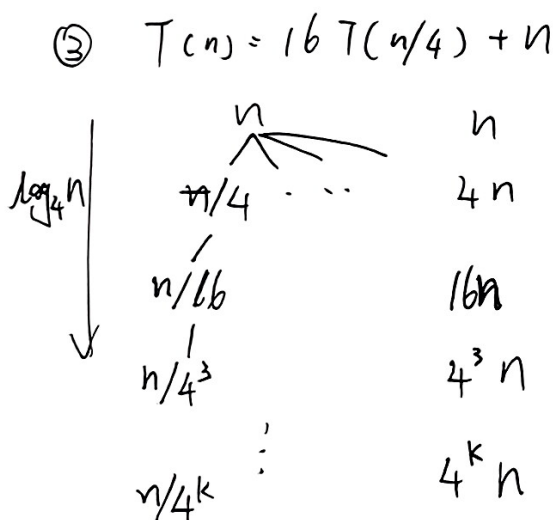 ③ T(n) = 16 T(n/4) + n
n n
log₄n n/4 . . . . 4n
n/16 16n
n/4³ 4³ n
⋮
n/4ᵏ 4ᵏ n